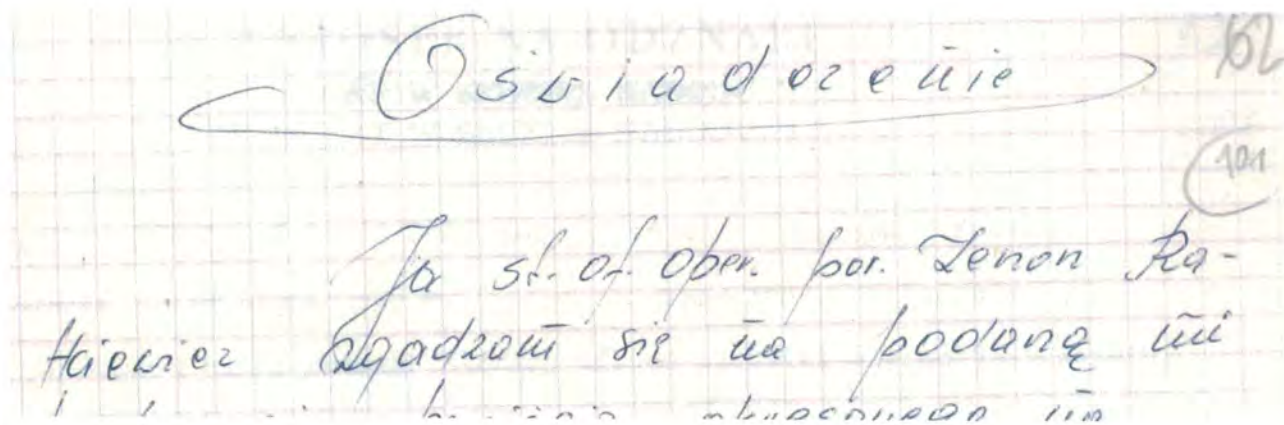 Oświadczenie
62
101
Ja st. of. oper. por. Zenon Ra-
tkiewicz zgadzam się na podaną mi